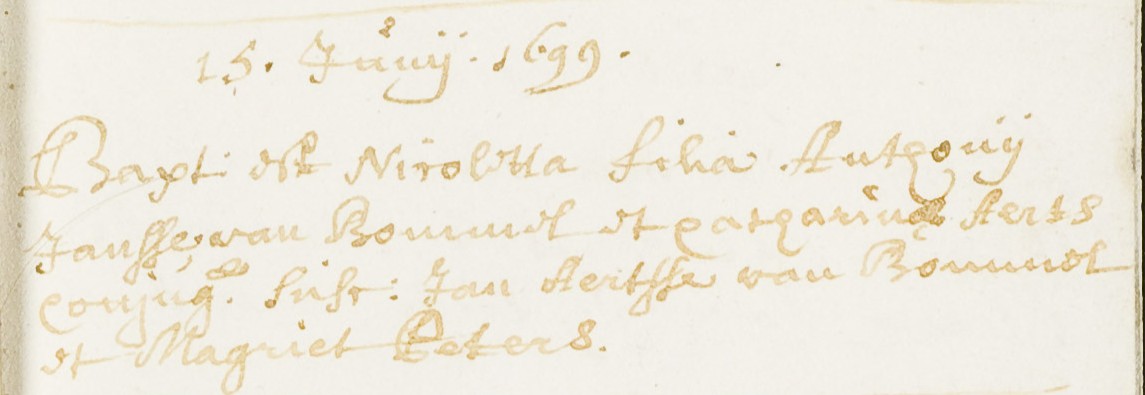 15. Junij. 1699.
Bapt: est Nicoletta filia Anthonij
Jansse van Bommel et Catharinae Aerts
conjug. Susc: Jan Aertsse van Bommel
et Magriet Peters.